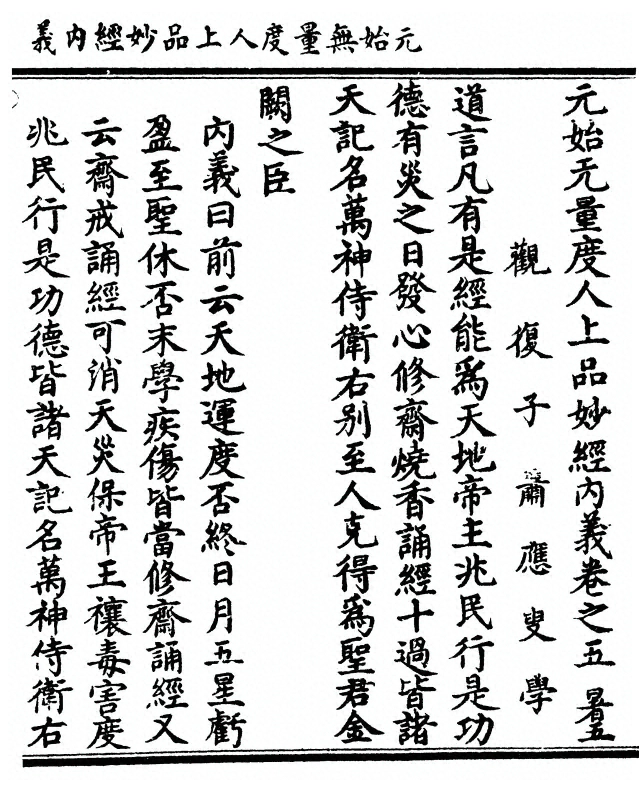 元始無量度人上品妙經內義
元始无量度人上品妙經內義卷之五 暑五
觀復子蕭應叟學
道言凡有是經能爲天地帝主兆民行是功
德有災之日發心修齋燒香誦經十過皆諸
天記名萬神侍衛右别至人克得爲聖君金
闕之臣
內義曰前云天地運度否終日月五星虧
盈至聖休否末學疾傷皆當修齋誦經又
云齋戒誦經可消天災保帝王禳毒害度
兆民行是功德皆諸天記名萬神侍衛右